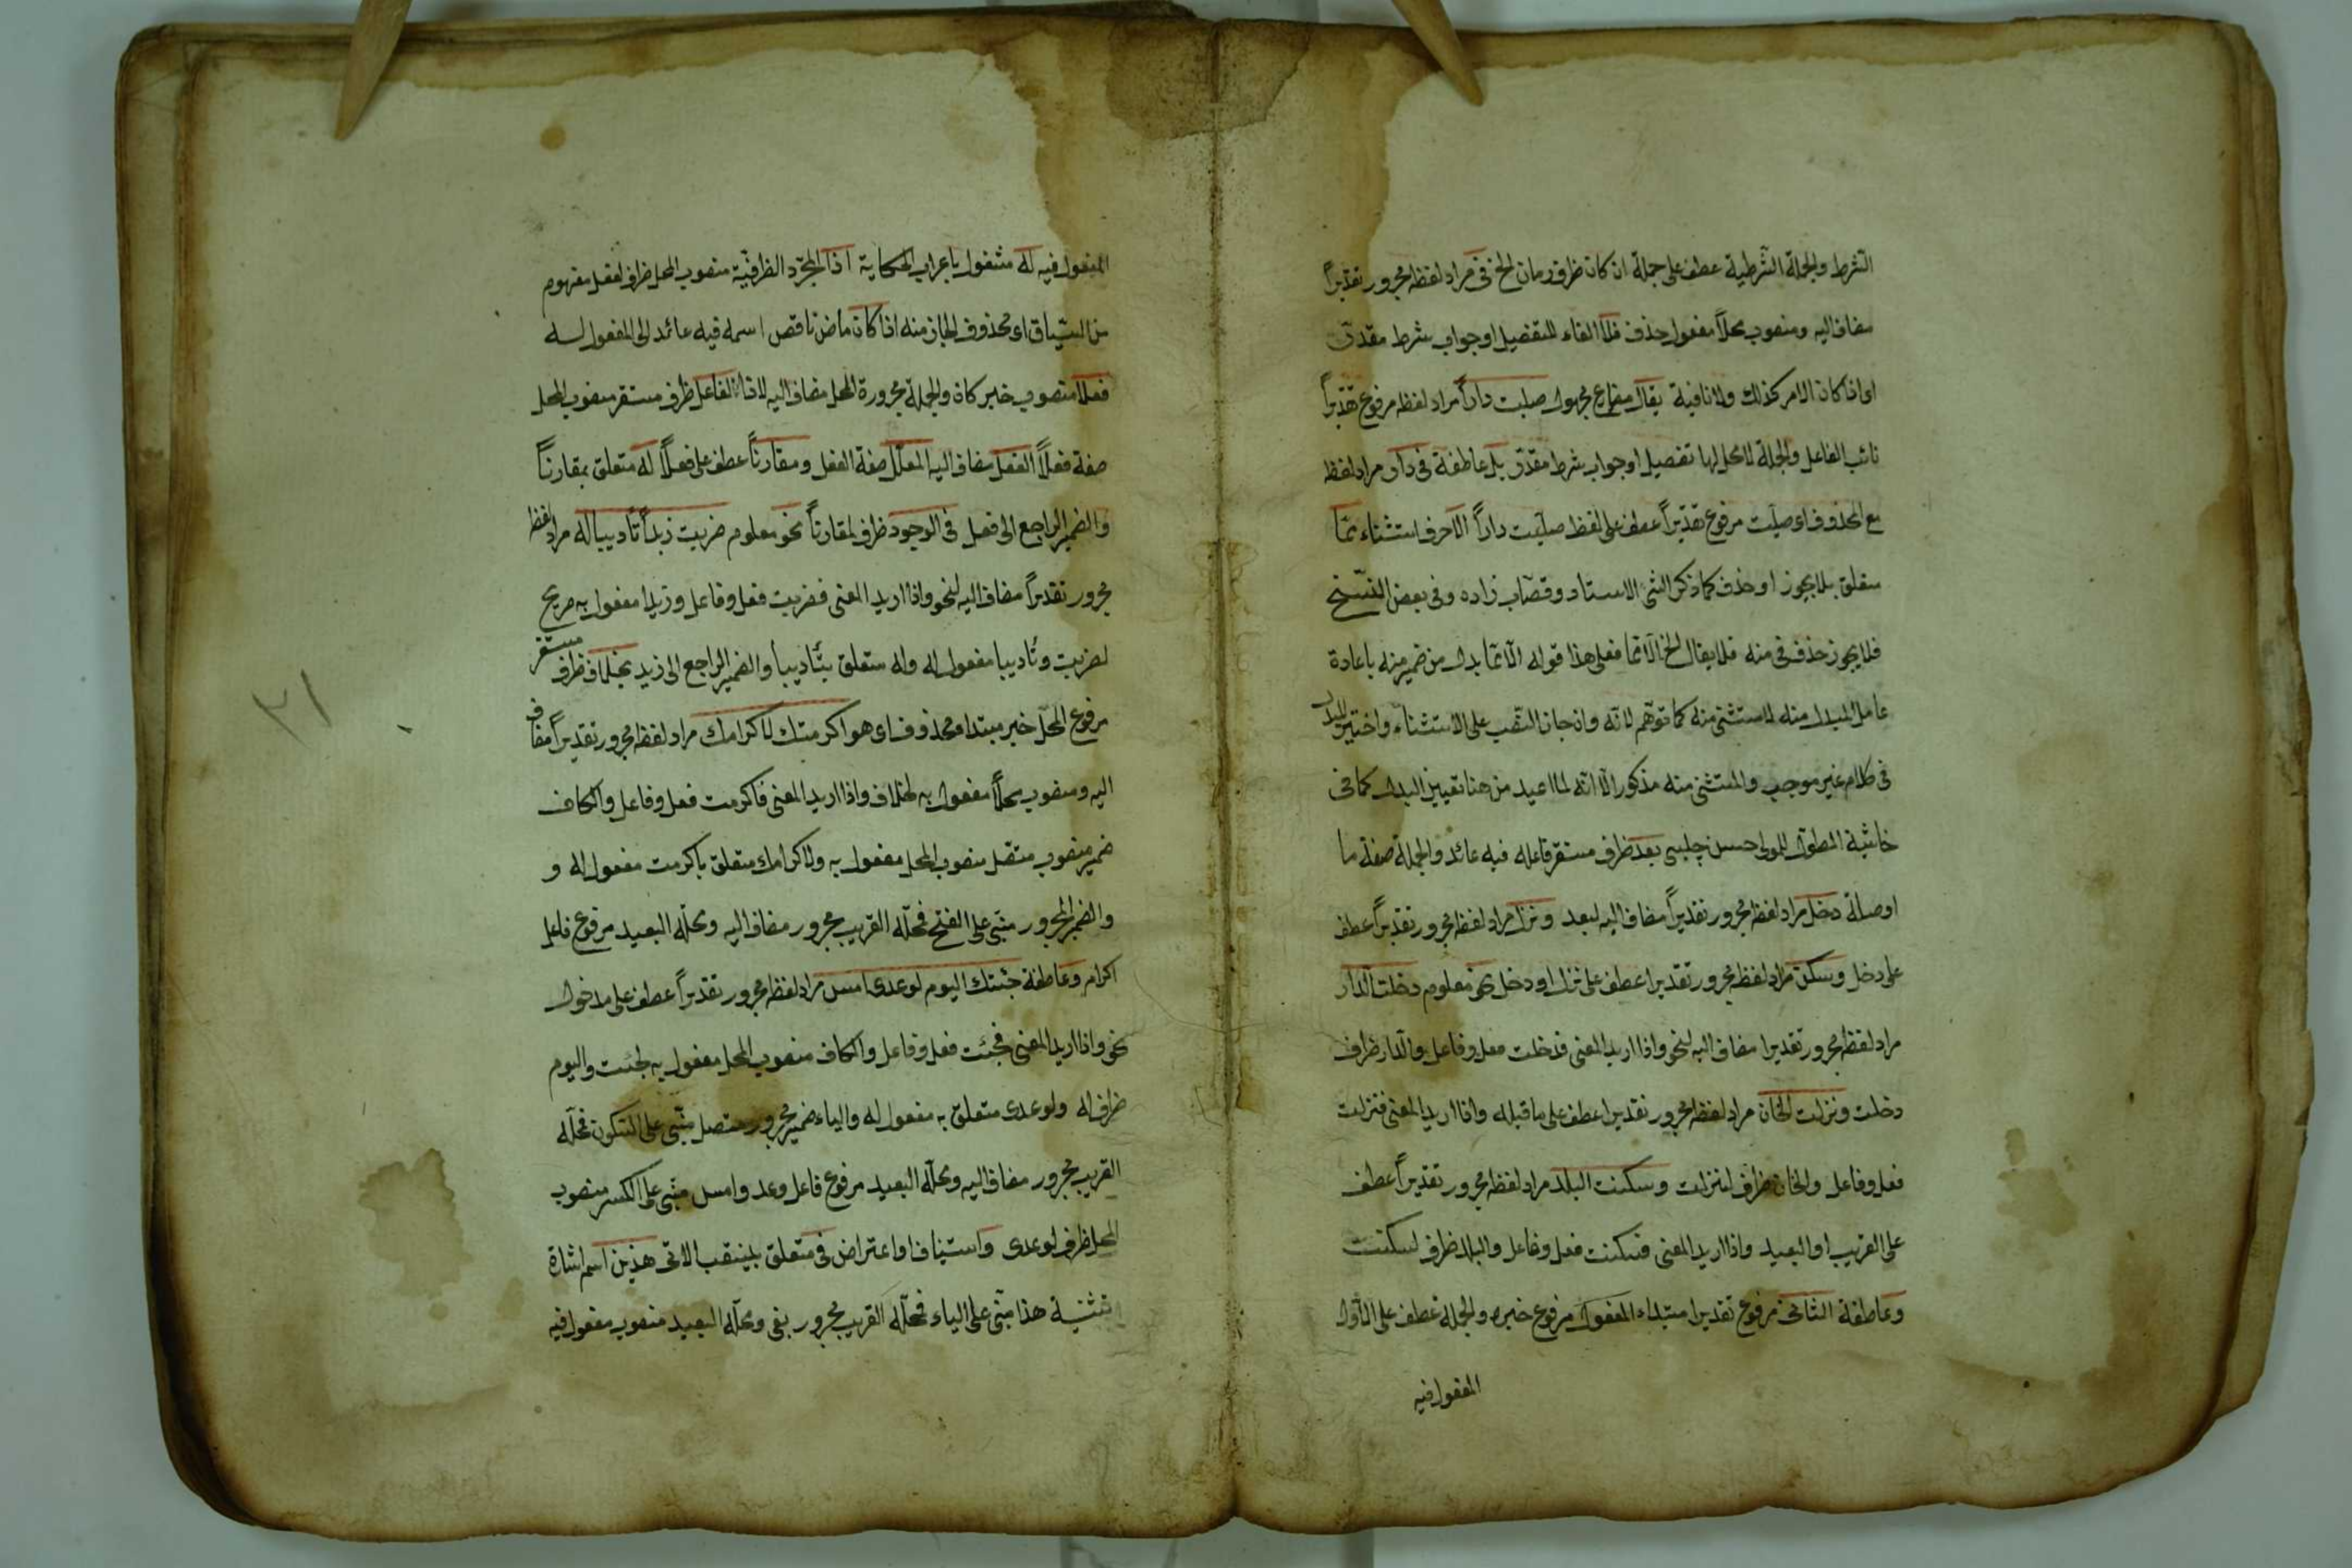 الشرط والجملة الشرطية عطف على جملة ان كان ظرف زمان الخ في مراد لفظه مجرور تقديراً
مضاف اليه ومنصوب محلاً مفعول حذف فلا الفاء للتفصيل او جواب شرط مقدر
اى اذا كان الامر كذلك ولا نافية يقال مضارع مجهول صليت داراً مراد لفظه مرفوع تقديراً
نائب الفاعل والجملة لا محل لها تفصيل او جواب شرط مقدر بل عاطفة في دار مراد لفظه
مع المحذوف اى صليت مرفوع تقديراً عطف على لفظ صليت داراً الا حرف استثناء مما
متعلق بلا يجوز او حذف كما ذكر الشيء الاستاد وقصاب زاده وفى بعض النسخ
فلا يجوز حذف فى منه فلا يقال الخ الا مما فعلى هذا قوله الا مما بدل من ضمير منه باعادة
عامل المبدل منه لا مستثنى منه كما توهم لانه وان جاز النصب على الاستثناء واختير البدل
فى كلام غير موجب والمستثنى منه مذكور الا انه لما اعيد من هنا تعيين البدل كما فى
حاشية المطول للمولى حسن چلبى بعد ظرف مستقر فاعله فيه عائد والجملة صفة ما
او صلة دخل مراد لفظه مجرور تقديراً مضاف اليه لبعد ونزل مراد لفظه مجرور تقديراً عطف
على دخل وسكن مراد لفظه مجرور تقديرا عطف على نزل او دخل نحو معلوم دخلت الدار
مراد لفظه مجرور تقديرا مضاف اليه لنحو واذا اريد المعنى فدخلت فعل وفاعل والدار ظرف
دخلت ونزلت الخان مراد لفظه مجرور تقديرا عطف على ما قبله واذا اريد المعنى فنزلت
فعل وفاعل والخان ظرف لنزلت وسكنت البلد مراد لفظه مجرور تقديراً عطف
على القريب او البعيد واذا اريد المعنى فسكنت فعل وفاعل والبلد ظرف لسكنت
وعاطفة الثانى مرفوع تقديرا مبتداء المفعول مرفوع خبره والجملة عطف على الاول
المفعول فيه
المفعول فيه له مشغول باعراب الحكاية اذا لمجرد الظرفية منصوب المحل ظرف لفعل مفهوم
من السياق اى محذوف الجار منه اذا كان ماض ناقص اسمه فيه عائد الى المفعول له
فعلا منصوب خبر كان والجملة مجرورة المحل مضاف اليه لاذا لفاعل ظرف مستقر منصوب المحل
صفة فعلاً الفعل مضاف اليه المعلل صفة الفعل ومقارناً عطف على فعلاً له متعلق بمقارناً
والضمير الراجع الى فعل فى الوجود ظرف لمقارناً نحو معلوم ضربت زيداً تأديبا له مراد لفظه
مجرور تقديراً مضاف اليه لنحو واذا اريد المعنى فضربت فعل وفاعل وزيدا مفعول به صريح
لضربت وتأديبا مفعول له وله متعلق بتأديبا والضمير الراجع الى زيد بخلاف ظرف مستقر
مرفوع المحل خبر مبتداء محذوف اى هو اكرمتك لاكرامك مراد لفظه مجرور تقديراً مضاف
اليه ومنصوب محلاً مفعول به لخلاف واذا اريد المعنى فاكرمت فعل وفاعل والكاف
ضمير منصوب متصل منصوب المحل مفعول به ولاكرامك متعلق باكرمت مفعول له و
والضمير المجرور مبنى على الفتح فمحله القريب مجرور مضاف اليه ومحله البعيد مرفوع فاعل
اكرام وعاطفة جئتك اليوم لوعدى امس مراد لفظه مجرور تقديراً عطف على مدخول
نحو واذا اريد المعنى فجئت فعل وفاعل والكاف منصوب المحل مفعول به لجئت واليوم
ظرف له ولوعدى متعلق به مفعول له والياء ضمير مجرور متصل مبنى على السكون فمحله
القريب مجرور مضاف اليه ومحله البعيد مرفوع فاعل وعد وامس مبنى على الكسر منصوب
المحل ظرف لوعدى واستيناف او اعتراض فى متعلق بلينصب الاتى هذين اسم اشارة
تثنية هذا مبنى على الياء فمحله القريب مجرور بفى ومحله البعيد منصوب مفعول فيه
٢١